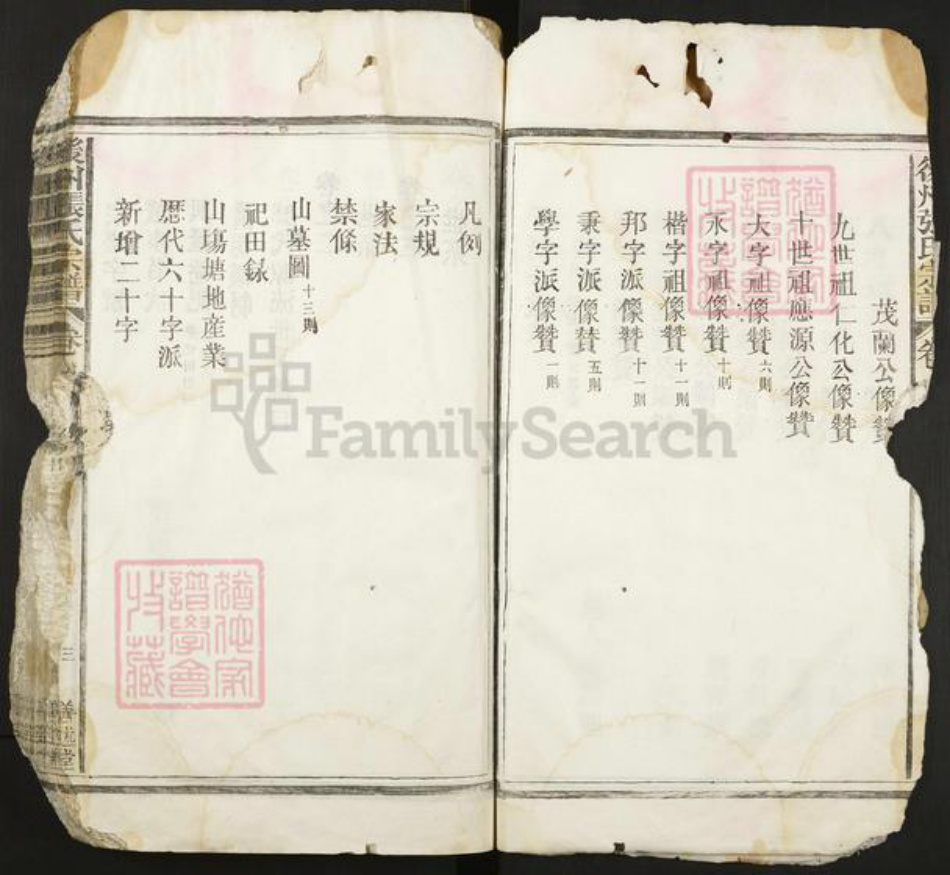 茂蘭公像贊
九世祖仁化公像贊
十世祖應源公像贊
大字祖像贊 六則
永字祖像贊 十則
楷字祖像贊 十一則
邦字派像贊 十一則
秉字派像贊 五則
學字派像贊 一則
凡例
宗規
家法
禁條
山墓圖 十三則
祀田錄
山塲塘地產業
歷代六十字派
新增二十字
張氏宗譜
三
堂
猶他家譜學會收藏
猶他家譜學會收藏
FamilySearch